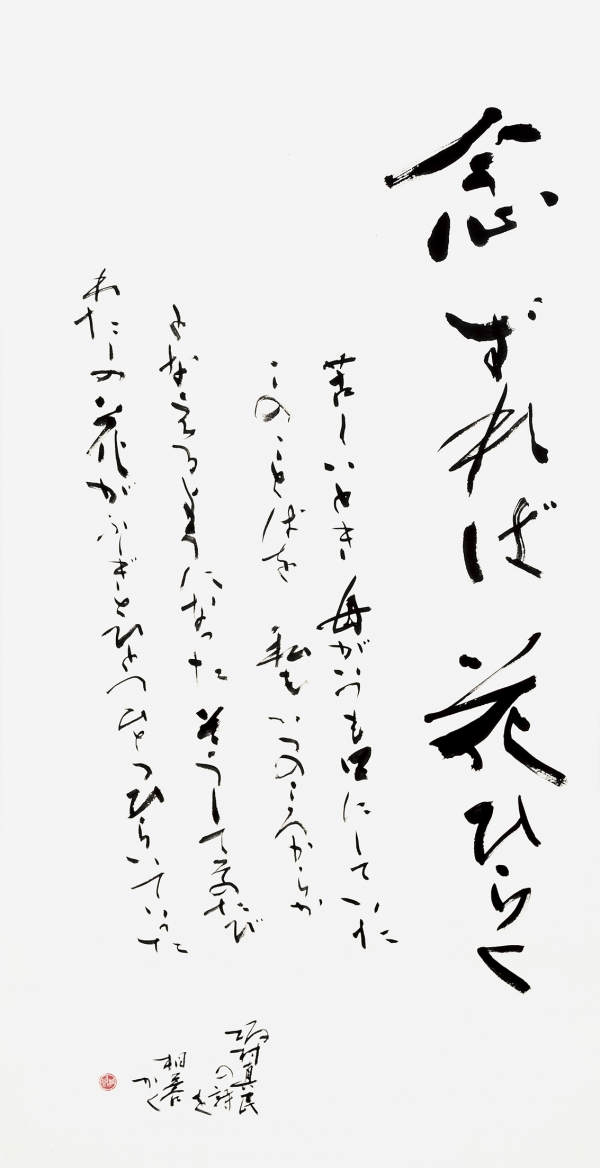 念ずれば 花ひらく
苦しいとき 母がいつも口にしていた
このことばを 私も いつのころからか
となえるようになった そうしてそのたび
わたしの花がふしぎとひとつひとつひらいていった
坂村真民
の詩を
かく